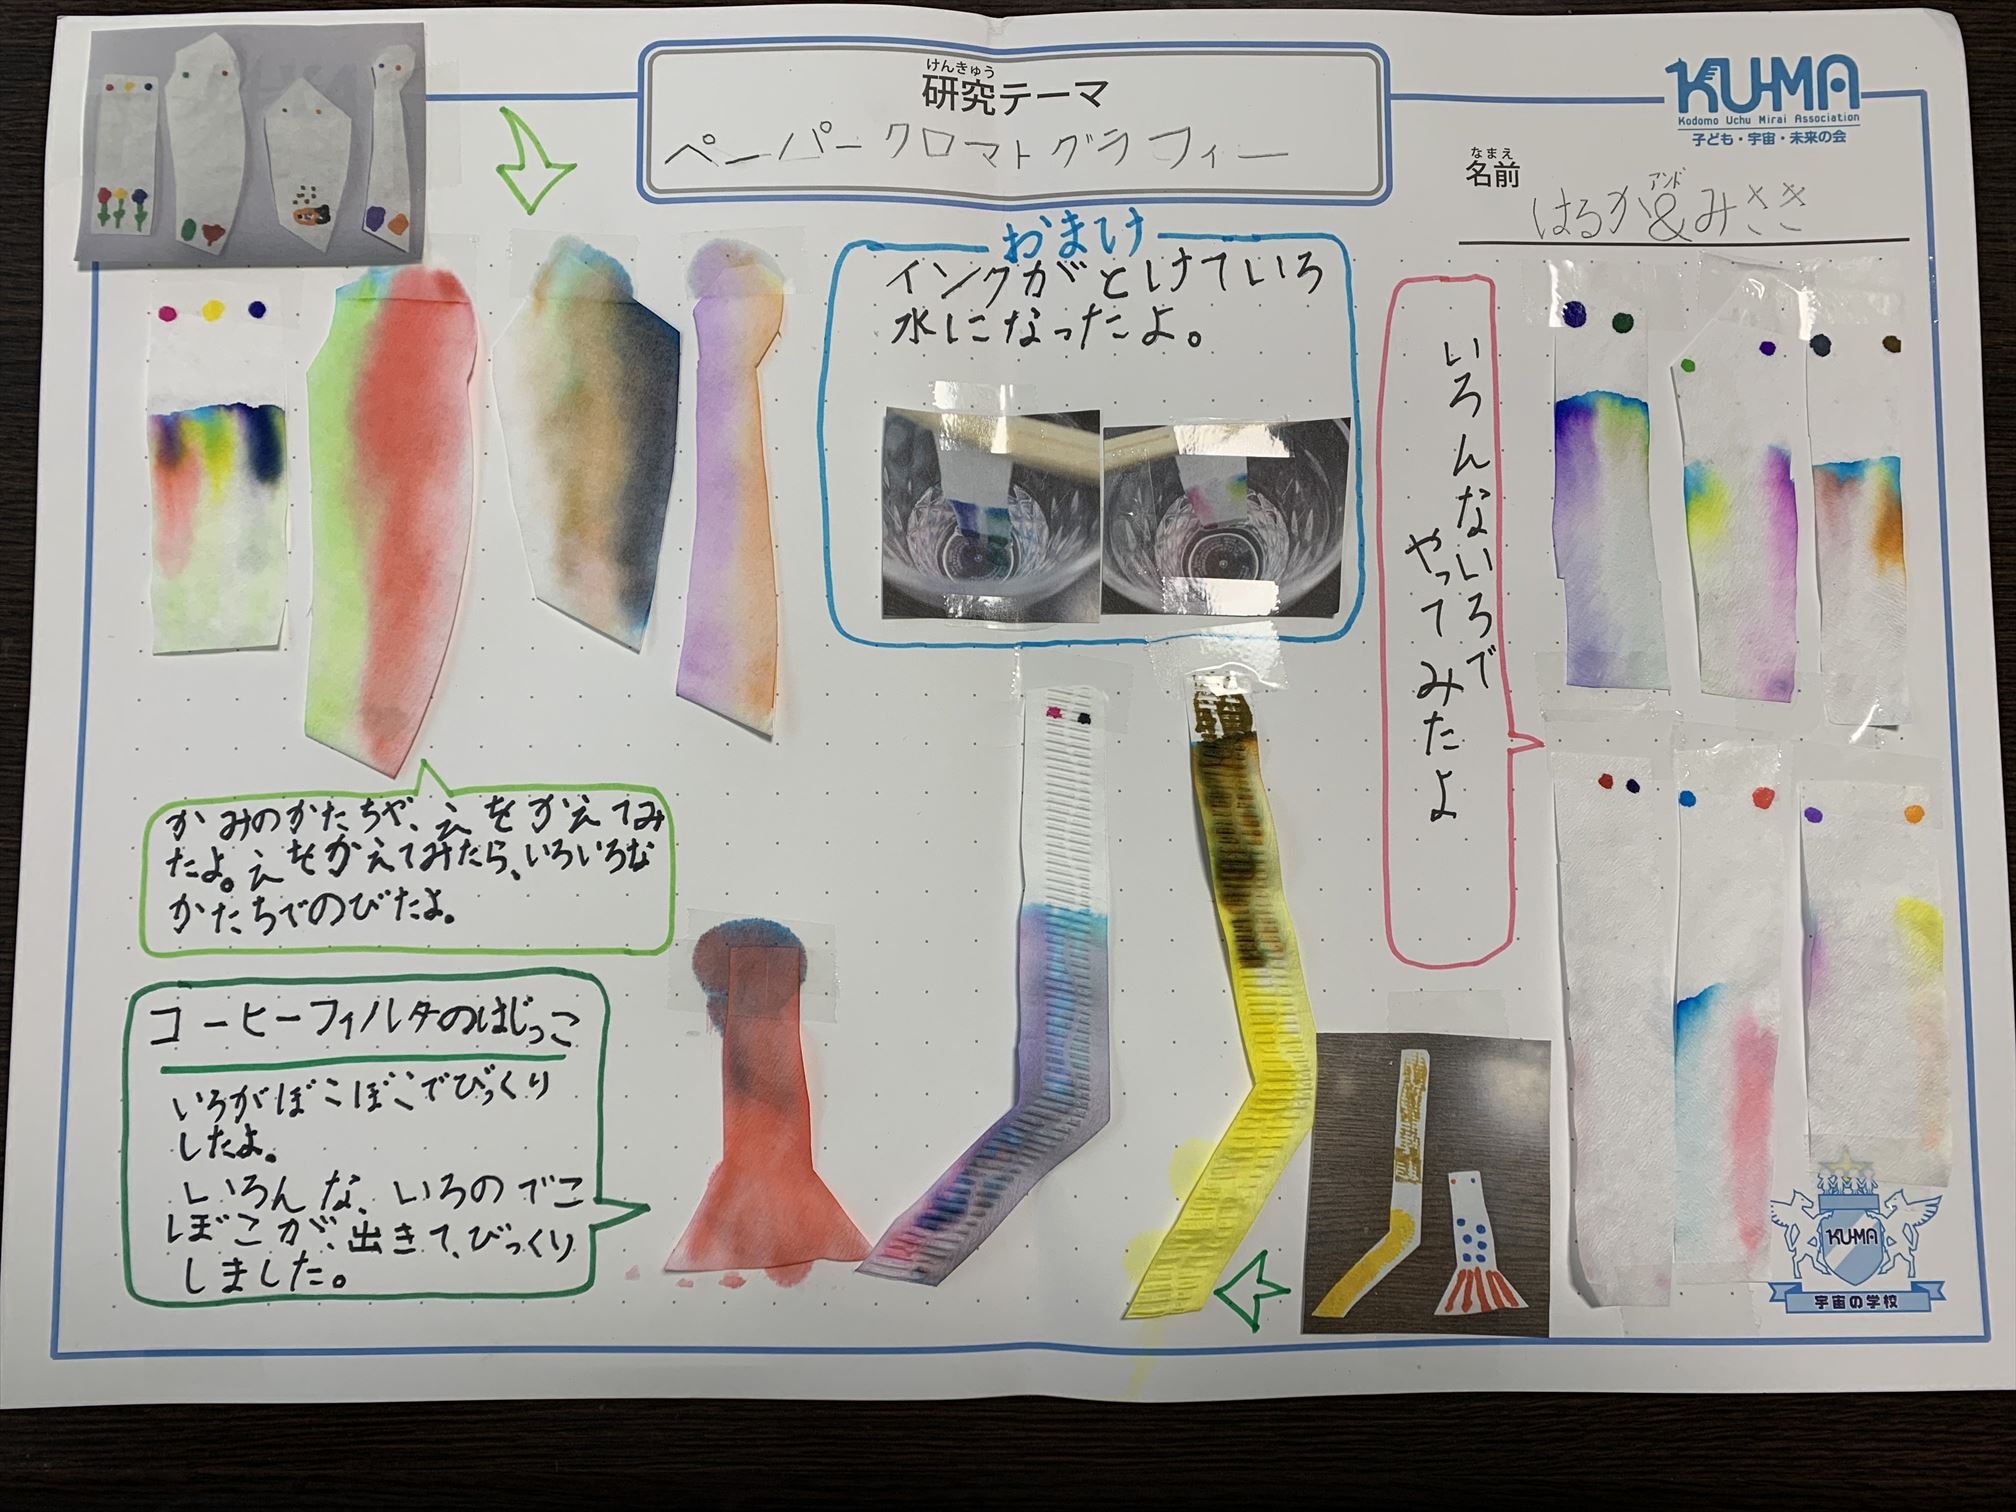 けんきゅう
研究テーマ
ペーパークロマトグラフィー
KU-MA
Kodomo Uchu Mirai Association
子ども・宇宙・未来の会
なまえ
名前
アンド
はるか&みさき
おまけ
インクがとけていろ
水になったよ。
いろんないろで
やってみたよ
かみのかたちや、えをかえてみ
たよ。えをかえてみたら、いろいろな
かたちでのびたよ。
コーヒーフィルターのはじっこ
いろがぼこぼこでびっくり
したよ。
いろんな、いろのでこ
ぼこが、出きて、びっくり
しました。
KU-MA
宇宙の学校